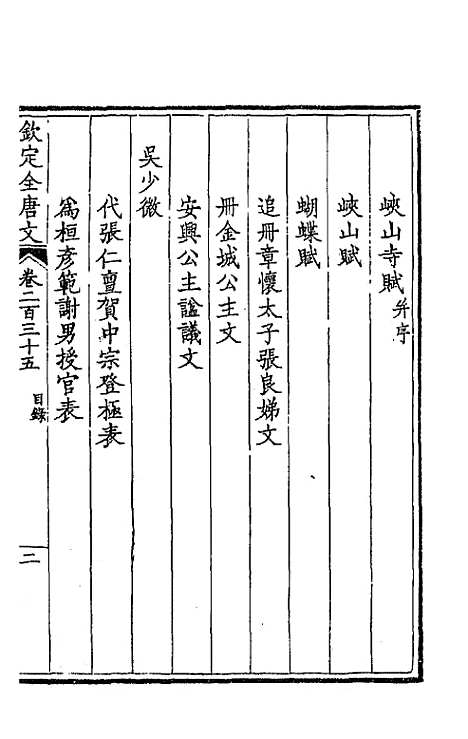 峽山寺賦 并序
峽山賦
蝴蝶賦
追冊章懷太子張良娣文
冊金城公主文
安興公主諡議文
吳少微
代張仁亶賀中宗登極表
為桓彥範謝男授官表
欽定全唐文 卷二百三十五 目錄 二